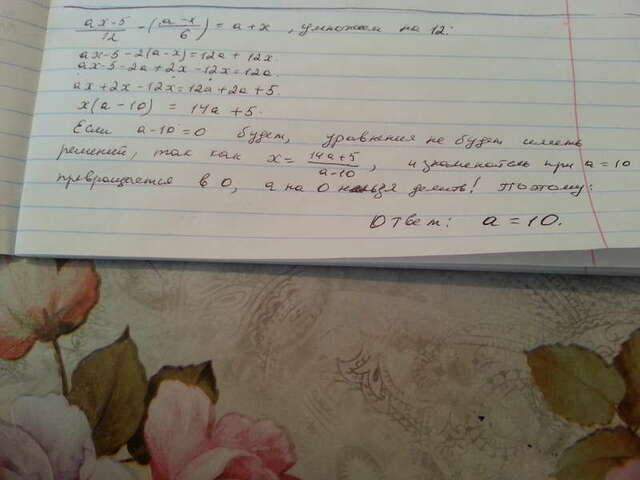 ax-5/12 - (a-x/6) = a+x, умножим на 12:
ax-5-2(a-x)=12a+12x.
ax-5-2a+2x-12x=12a.
ax+2x-12x=12a+2a+5.
x(a-10) = 14a+5.
Если a-10=0 будет, уравнения не будет иметь
решений, так как x= 14a+5/a-10, и знаменатель при a=10
превращается в 0, а на 0 нельзя делить! Поэтому:
Ответ: a=10.